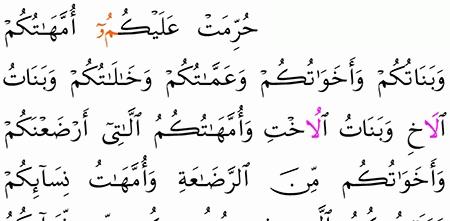 حُرِّمَتْ عَلَيْكُمُۥٓ أُمَّهَٰتُكُمْ
وَبَنَاتُكُمْ وَأَخَوَٰتُكُمْ وَعَمَّٰتُكُمْ وَخَٰلَٰتُكُمْ وَبَنَاتُ
ٱلَاخِ وَبَنَاتُ ٱلُاخْتِ وَأُمَّهَٰتُكُمُ ٱلَّٰتِىٓ أَرْضَعْنَكُمْ
وَأَخَوَٰتُكُم مِّنَ ٱلرَّضَٰعَةِ وَأُمَّهَٰتُ نِسَآئِكُمْ